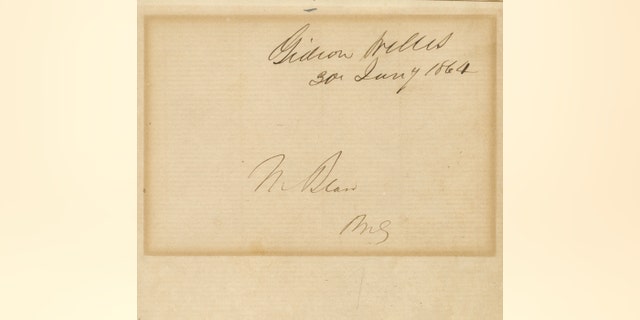 Gideon Welles
30 Jany 1864
M Blair
PMG